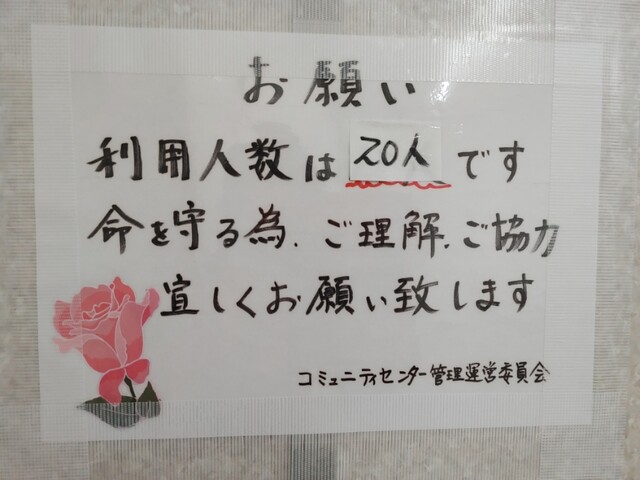 お願い
利用人数は20人です
命を守る為、ご理解、ご協力
宜しくお願い致します
コミュニティセンター管理運営委員会